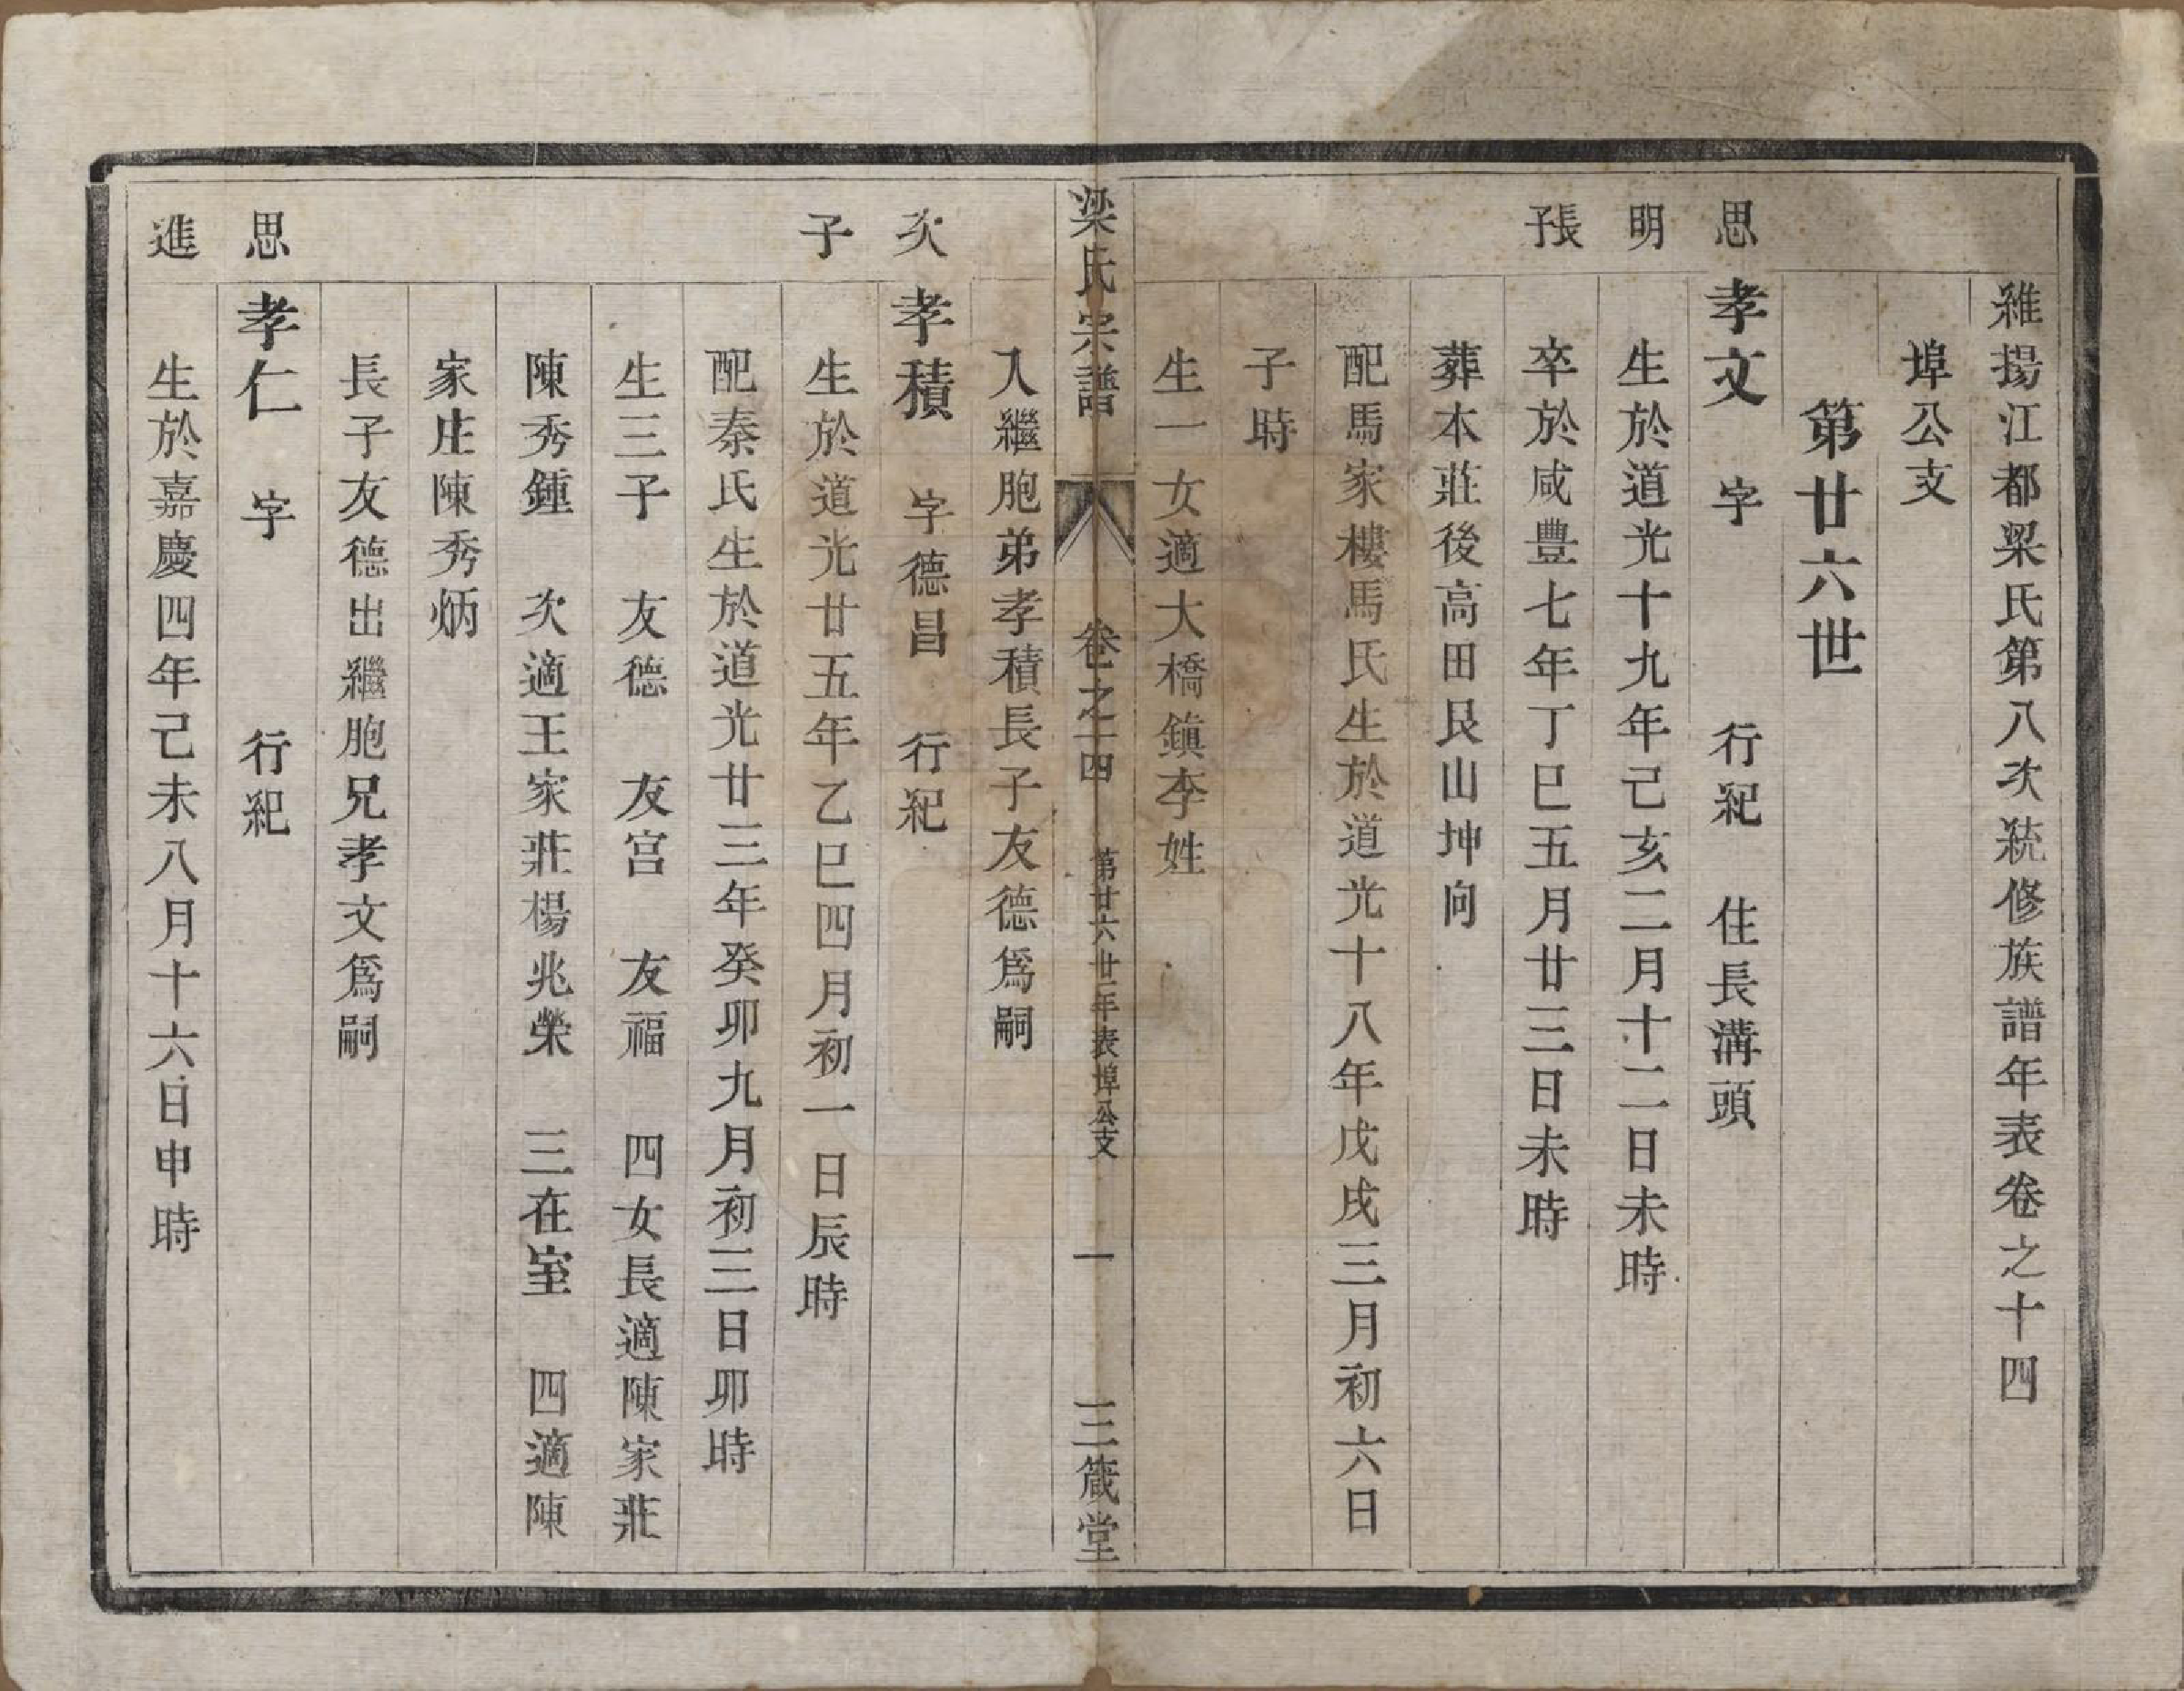 維揚江都梁氏第八次統修族譜年表卷之十四
埠公支
第廿六世
思 孝文 字 行紀 住長溝頭
明 生於道光十九年己亥二月十二日未時
長子 卒於咸豐七年丁巳五月廿三日未時
葬本莊後高田艮山坤向
配馬家樓馬氏生於道光十八年戊戌三月初六日
子時
生一女適大橋鎮李姓
梁氏宗譜 卷之十四 第廿六世年表埠公支 一 三箴堂
入繼胞弟孝積長子友德為嗣
次 孝積 字德昌 行紀
子 生於道光廿五年乙巳四月初一日辰時
配秦氏生於道光廿三年癸卯九月初三日卯時
生三子 友德 友宮 友福 四女長適陳家莊
陳秀鍾 次適王家莊楊兆榮 三在室 四適陳
家庄陳秀炳
長子友德出繼胞兄孝文為嗣
思 孝仁 字 行紀
進 生於嘉慶四年己未八月十六日申時